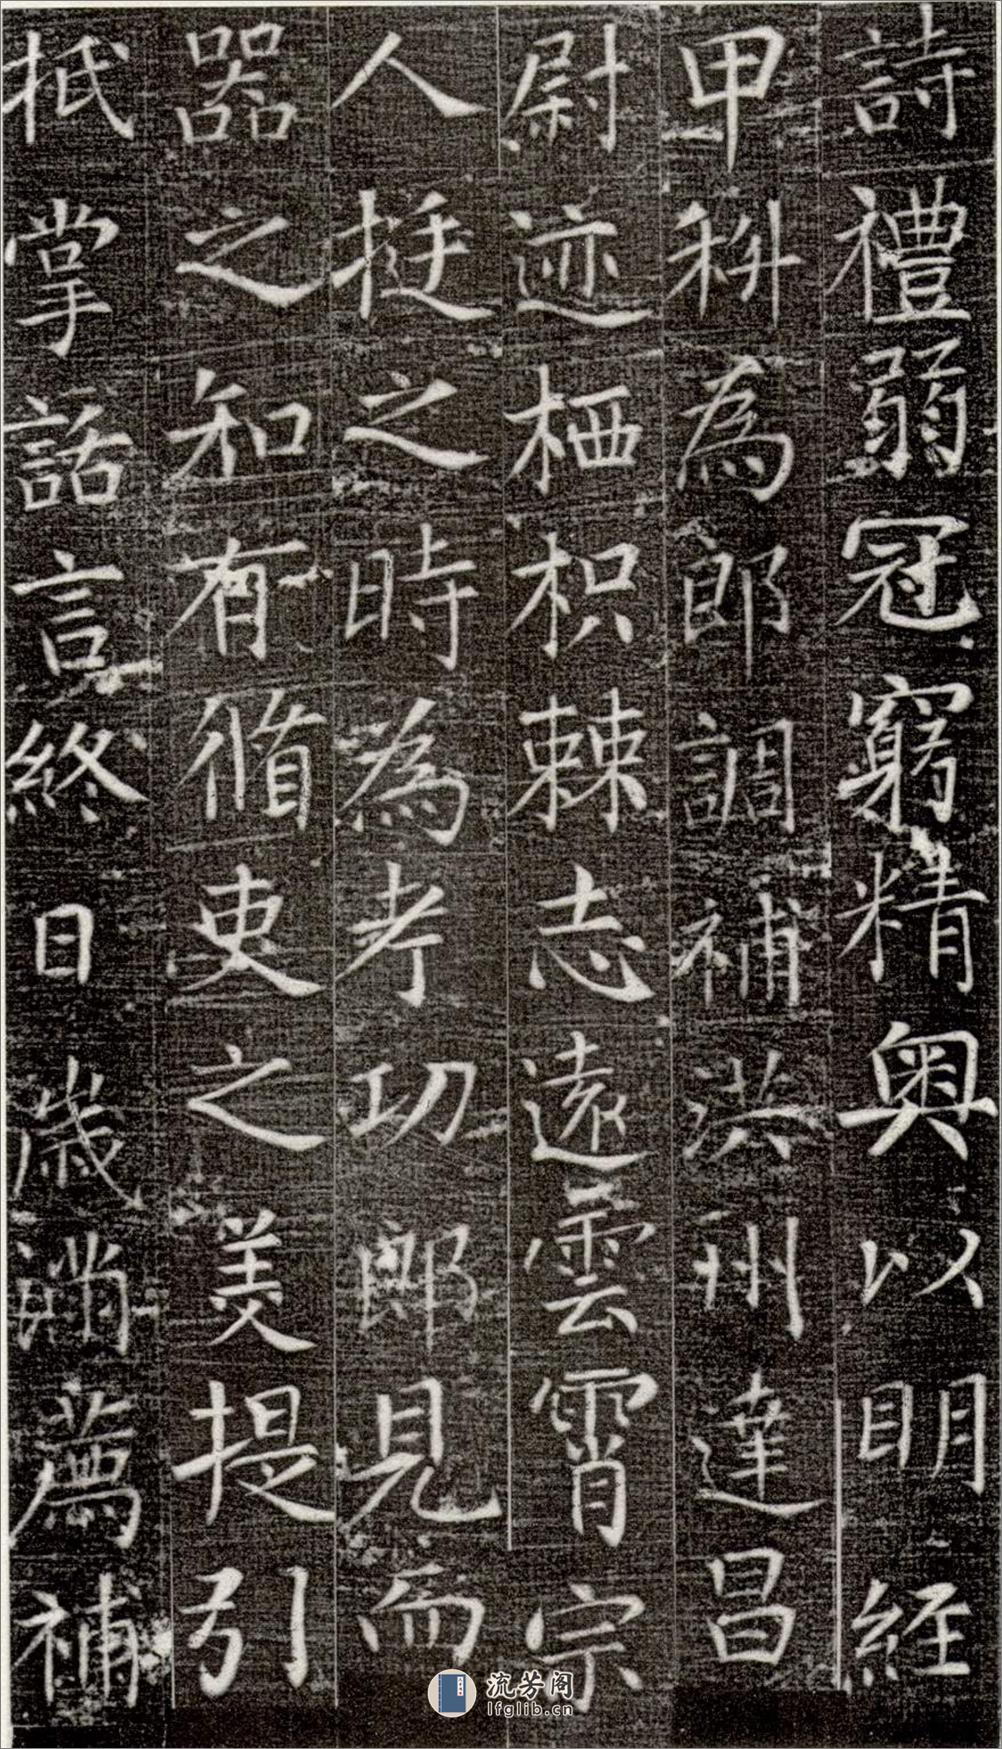 詩禮弱冠窮精奧以明經
甲科為郎調補洪州達昌
尉迹栖枳棘志遠雲霄宗
人挺之時為考功郎見而
器之和有脩吏之美提引
抵掌話言終日歲滿薦補
流芳阁
lfglib.cn